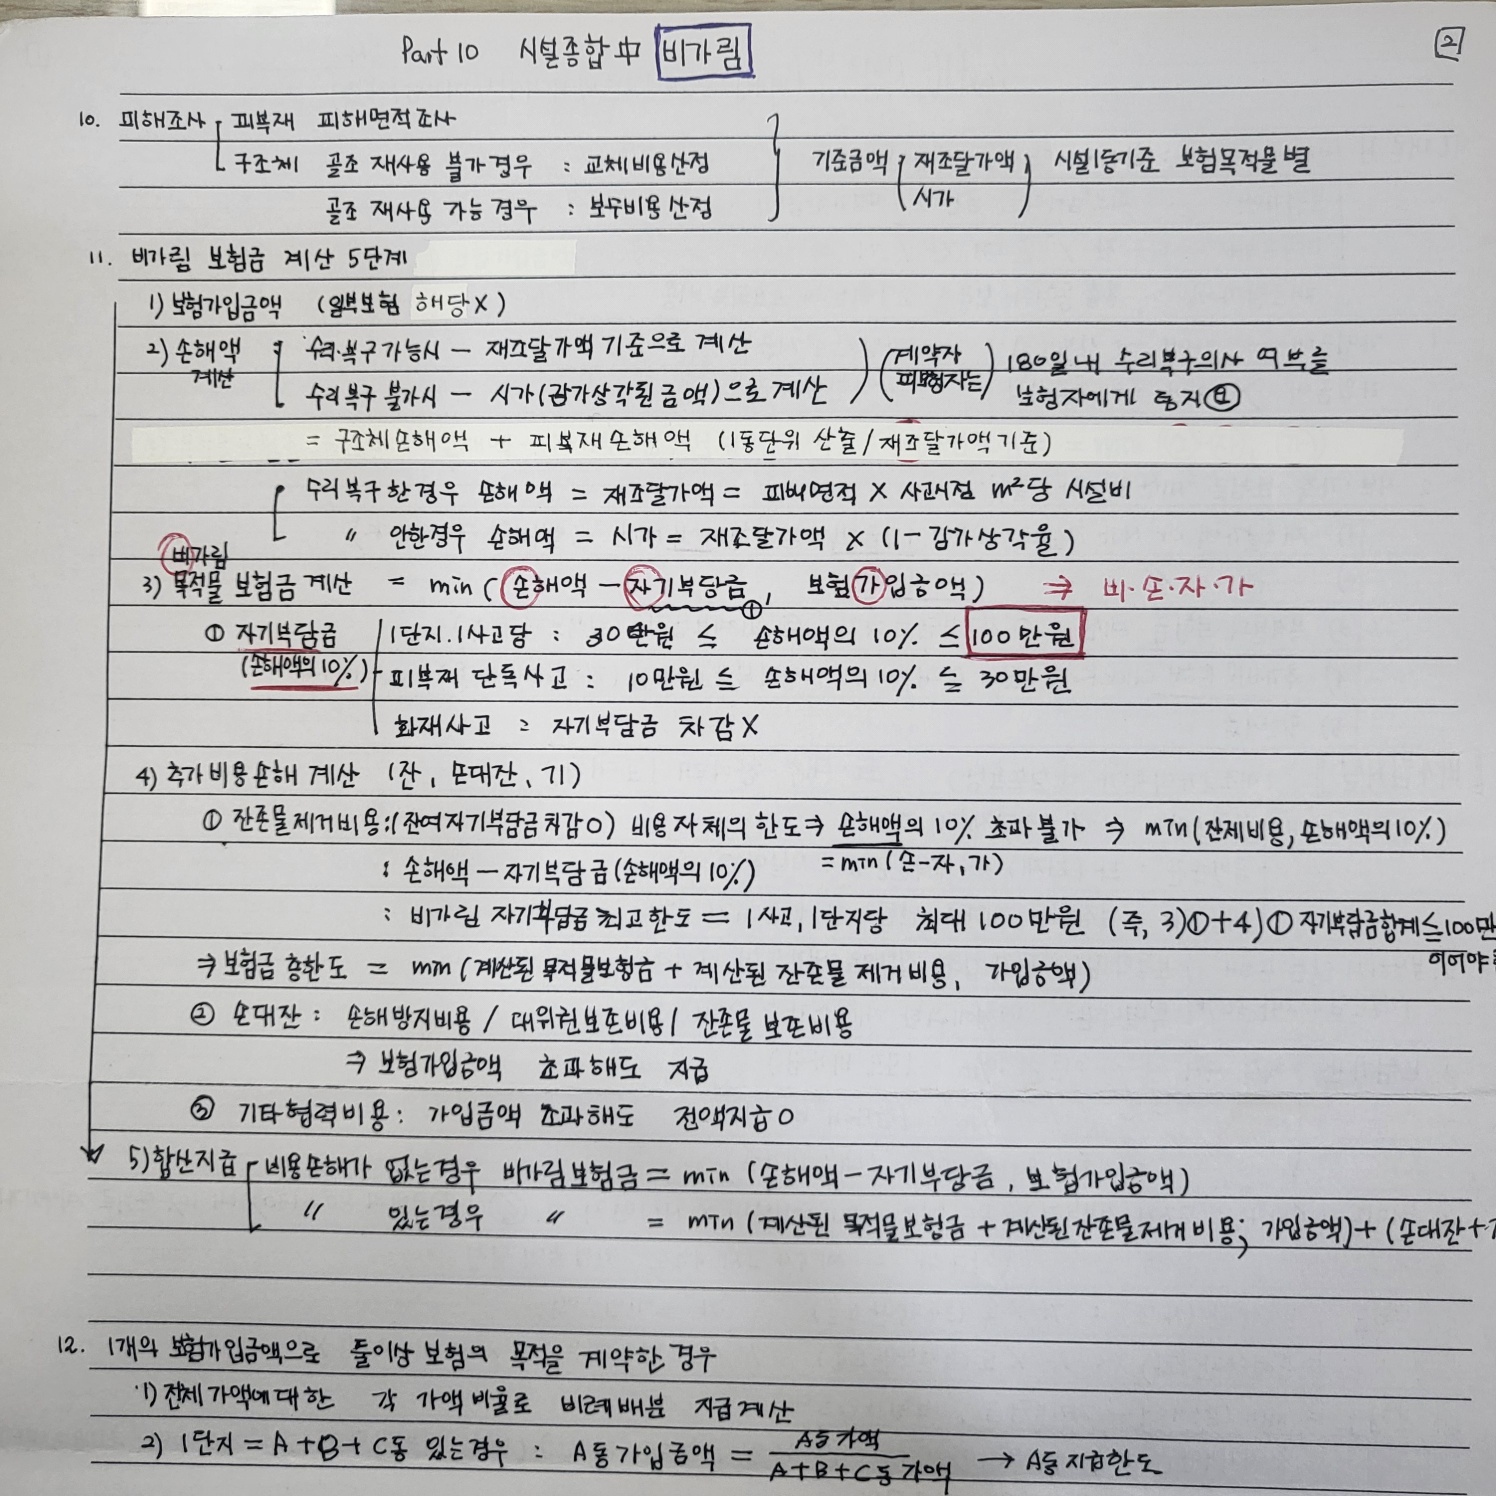 Part 10 시설종합中 비가림
2
10. 피해조사 피복재 피해면적조사
구조체 골조 재사용 불가경우 : 교체비용산정 기준금액 (재조달가액) 시설1동기준 보험목적물별
골조 재사용 가능경우 : 보수비용산정 (시가)
11. 비가림 보험금 계산 5단계
1) 보험가입금액 (일부보험 해당X)
2) 손해액 계산 수리.복구가능시 - 재조달가액 기준으로 계산 (계약자 피보험자는) 180일내 수리복구의사 여부를
수리복구 불가시 - 시가(감가상각된금액)으로계산 보험자에게 통지
= 구조체손해액 + 피복재손해액 (1동단위 산출/재조달가액기준)
수리복구한경우 손해액 = 재조달가액 = 피해면적 X 사고시점 m²당 시설비
〃 안한경우 손해액 = 시가 = 재조달가액 X (1-감가상각율)
비가림
3) 목적물 보험금계산 = min(손해액-자기부담금①, 보험가입금액) ⇒ 비·손·자·가
① 자기부담금 1단지.1사고당 : 30만원 ≤ 손해액의 10% ≤ 100만원
(손해액의10%) 피복재 단독사고 : 10만원 ≤ 손해액의10% ≤ 30만원
화재사고 : 자기부담금 차감X
4) 추가비용손해 계산 (잔, 손대잔, 기)
① 잔존물제거비용:(잔여자기부담금차감O) 비용자체의 한도⇒ 손해액의 10% 초과불가 ⇒ min(잔제비용, 손해액의10%)
: 손해액-자기부담금(손해액의10%) =min(손-자,가)
: 비가림 자기부담금 최고한도 = 1사고,1단지당 최대 100만원 (즉, 3)①+4)① 자기부담금합계≤100만
이어야
⇒ 보험금 총한도 = min(계산된 목적물보험금 + 계산된 잔존물 제거비용, 가입금액)
② 손대잔 : 손해방지비용 / 대위권보존비용 / 잔존물 보존비용
⇒ 보험가입금액 초과해도 지급
③ 기타협력비용 : 가입금액 초과해도 전액지급O
5) 합산지급 비용손해가 없는경우 비가림보험금 = min (손해액-자기부담금, 보험가입금액)
〃 있는경우 〃 = min (계산된 목적물보험금 + 계산된잔존물제거비용, 가입금액) + (손대잔+
12. 1개의 보험가입금액으로 둘이상 보험의 목적을 계약한 경우
1) 전체가액에대한 각 가액비율로 비례배분 지급계산
2) 1단지 = A+B+C동 있는경우 : A동가입금액 = A동가액 / A+B+C동가액 → A동 지급한도